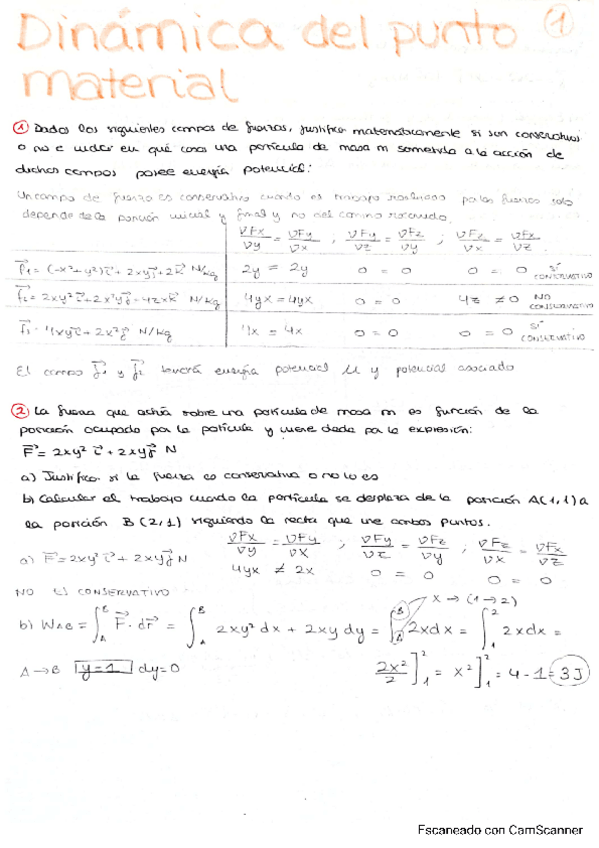 Dinámica del punto 1
material
1 Dados los siguientes campos de fuerzas, justifica matemáticamente si son conservativos
o no e indica en qué casos una partícula de masa m sometida a la acción de
dichos campos posee energía potencial:
Un campo de fuerza es conservativo cuando es trabajo realizado por las fuerzas solo
depende de la posición inicial y final y no del camino recorrido.
∇Fx/∇y = ∇Fy/∇x ; ∇Fy/∇z = ∇Fz/∇y ; ∇Fz/∇x = ∇Fx/∇z
f1 = (-x²+y²)i + 2xyj + 2k N/kg 2y = 2y 0 = 0 0 = 0 SÍ CONSERVATIVO
f2 = 2xy²i + 2x²yj - 4zxk N/kg 4yx = 4yx 0 = 0 4z ≠ 0 NO CONSERVATIVO
4xyi + 2x²j N/kg 4x = 4x 0 = 0 0 = 0 SÍ CONSERVATIVO
El campo f1 y f2 tendrá energía potencial U y potencial asociado
2 La fuerza que actúa sobre una partícula de masa m es función de la
posición ocupada por la partícula y viene dada por la expresión:
F = 2xy² i + 2xyj N
a) Justifica si la fuerza es conservativa o no lo es
b) Calcular el trabajo cuando la partícula se desplaza de la posición A(1,1) a
la posición B(2,1) siguiendo la recta que une ambos puntos.
∇Fx/∇y = ∇Fy/∇x ; ∇Fy/∇z = ∇Fz/∇y ; ∇Fz/∇x = ∇Fx/∇z
a) F = 2xy² i + 2xyj N 4yx ≠ 2x 0 = 0 0 = 0
NO ES CONSERVATIVO
x → (1→2)
b) WAB = ∫_A^B F · dr = ∫_A^B 2xy² dx + 2xy dy = ∫_A^B 2xdx = ∫_1^2 2xdx =
A → B y=1 dy=0 2x²/2]_1^2 = x²]_1^2 = 4-1 = 3J
Escaneado con CamScanner